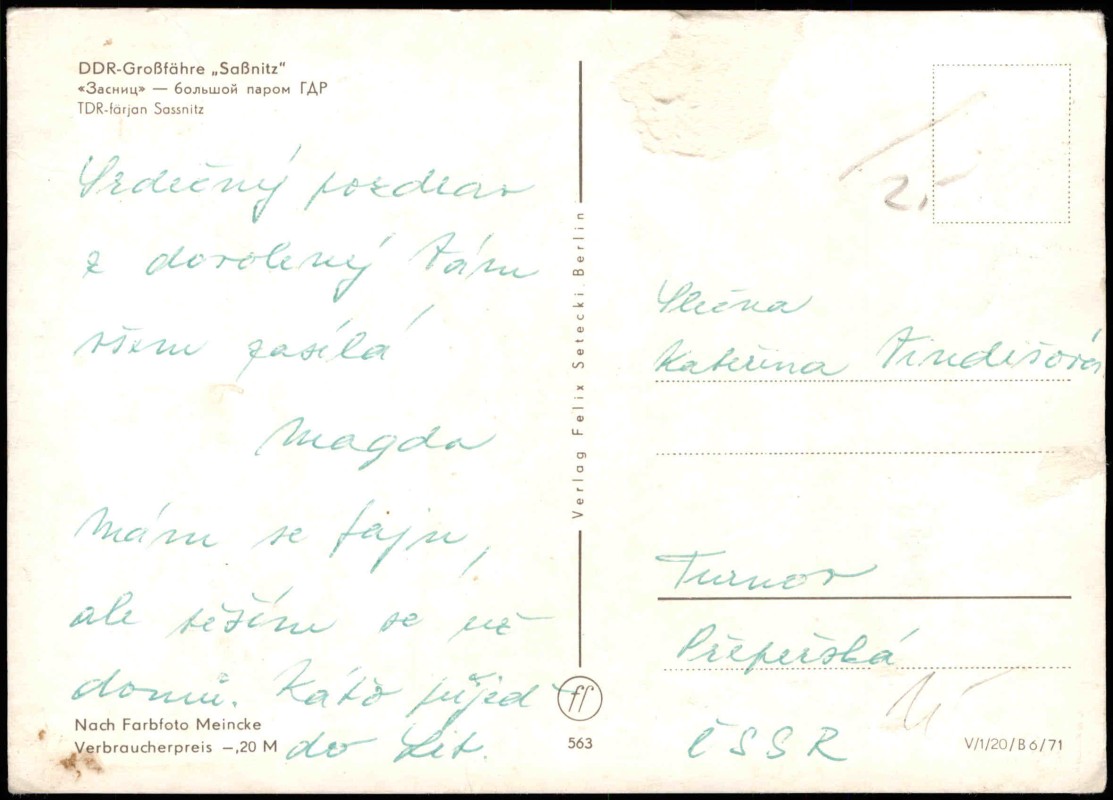 DDR-Großfähre „Saßnitz"
«Засниц» — большой паром ГДР
TDR-färjan Sassnitz
Srdečný pozdrav
z dovolený Vám
všem zasílá
Magda
Mám se fajn,
ale těším se už
domů. Káťo přijeď
do Lit.
Nach Farbfoto Meincke
Verbraucherpreis –,20 M
Verlag Felix Setecki, Berlin
ff
563
2,-
Slečna
Kateřina Vindišová
Turnov
Přepeřská
ČSSR
V/1/20/B 6/71